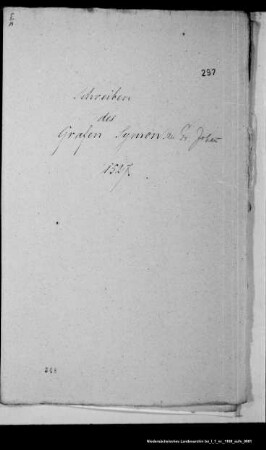 297
Schreiben
des
Grafen Symon an Gr. Johan
1527.
Niedersächsisches Landesarchiv